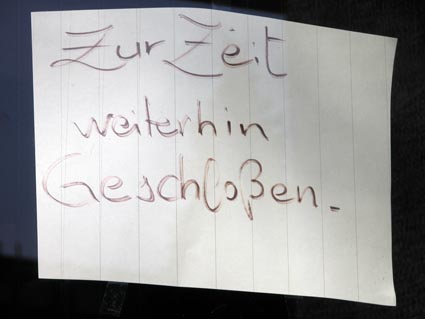 Zur Zeit
weiterhin
Geschloßen.